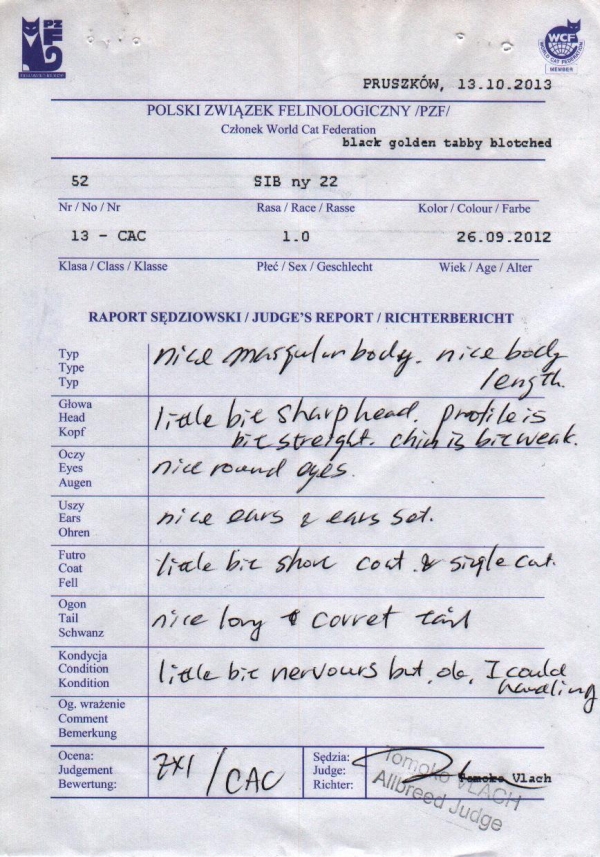 PZF
WCF
WORLD CAT FEDERATION
MEMBER
PRUSZKÓW, 13.10.2013
POLSKI ZWIĄZEK FELINOLOGICZNY /PZF/
Członek World Cat Federation
black golden tabby blotched
52 SIB ny 22
Nr / No / Nr Rasa / Race / Rasse Kolor / Colour / Farbe
13 - CAC 1.0 26.09.2012
Klasa / Class / Klasse Płeć / Sex / Geschlecht Wiek / Age / Alter
RAPORT SĘDZIOWSKI / JUDGE'S REPORT / RICHTERBERICHT
Typ
Type
Typ
nice masqular body. nice body
length.
Głowa
Head
Kopf
little bit sharp head. profile is
bit streight. chin is bit weak.
Oczy
Eyes
Augen
nice round eyes.
Uszy
Ears
Ohren
nice ears & ears set.
Futro
Coat
Fell
little bit short coat & single cat.
Ogon
Tail
Schwanz
nice long & corret tail
Kondycja
Condition
Kondition
little bit nervours but, ok, I could
handling
Og. wrażenie
Comment
Bemerkung
Ocena:
Judgement
Bewertung:
EX1 / CAC
Sędzia:
Judge:
Richter:
Tomoko Vlach
Tomoko VLACH
Allbreed Judge